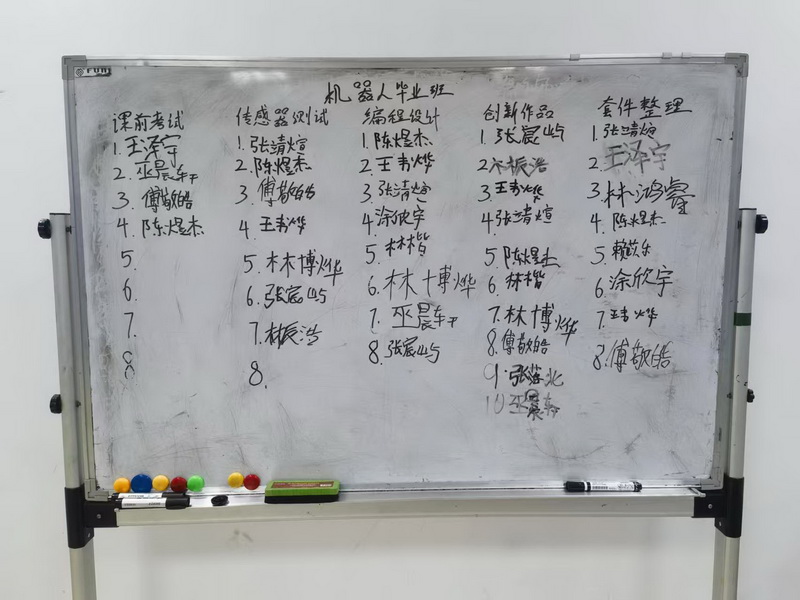 机器人毕业班
课前考试
1. 王泽宇
2. 巫晨轩
3. 傅敬皓
4. 陈煜杰
5.
6.
7.
8
传感器测试
1. 张靖煊
2. 陈煜杰
3. 傅敬皓
4. 王韦烨
5. 林博烨
6. 张宸屿
7. 林辰浩
8.
编程设计
1. 陈煜杰
2. 王韦烨
3. 张靖煊
4. 涂欣宇
5. 林楷
6. 林博烨
7. 巫晨轩
8. 张宸屿
创新作品
1. 张宸屿
2 林振浩
3. 王韦烨
4. 张靖煊
5. 陈煜杰
6. 林楷
7. 林博烨
8. 傅敬皓
9. 张洛北
10 巫晨轩
套件整理
1. 张靖煊
2. 王泽宇
3. 林鸿睿
4. 陈煜杰
5.
6. 涂欣宇
7. 王韦烨
8. 傅敬皓